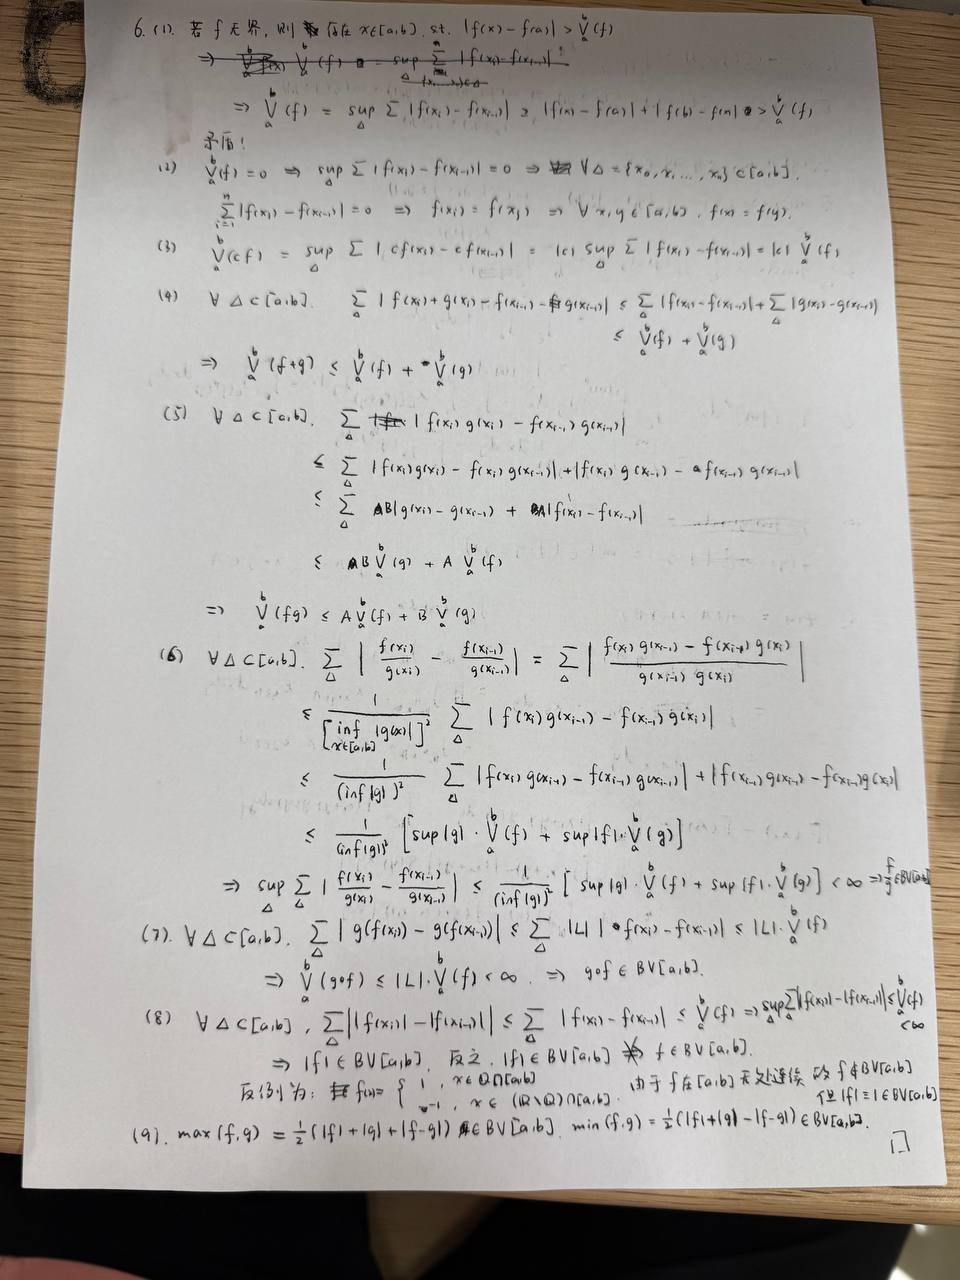 6. (1). 若 f 无界, 则 存在 x∈[a,b]. s.t. |f(x) - f(a)| > V_a^b(f)
⇒ V_a^b(f) = sup_Δ Σ |f(x_i) - f(x_{i-1})| ≥ |f(x) - f(a)| + |f(b) - f(x)| > V_a^b(f)
矛盾!
(2) V_a^b(f) = 0 ⇒ sup_Δ Σ |f(x_i) - f(x_{i-1})| = 0 ⇒ ∀Δ = {x_0, x_1, ..., x_n} ⊂ [a,b].
Σ_{i=1}^n |f(x_i) - f(x_{i-1})| = 0 ⇒ f(x_i) = f(x_j) ⇒ ∀ x,y ∈ [a,b]. f(x) = f(y).
(3) V_a^b(cf) = sup_Δ Σ |cf(x_i) - cf(x_{i-1})| = |c| sup_Δ Σ |f(x_i) - f(x_{i-1})| = |c| V_a^b(f)
(4) ∀ Δ ⊂ [a,b]. Σ_Δ |f(x_i) + g(x_i) - f(x_{i-1}) - g(x_{i-1})| ≤ Σ_Δ |f(x_i) - f(x_{i-1})| + Σ_Δ |g(x_i) - g(x_{i-1})|
≤ V_a^b(f) + V_a^b(g)
⇒ V_a^b(f+g) ≤ V_a^b(f) + V_a^b(g)
(5) ∀ Δ ⊂ [a,b]. Σ_Δ |f(x_i) g(x_i) - f(x_{i-1}) g(x_{i-1})|
≤ Σ_Δ |f(x_i) g(x_i) - f(x_i) g(x_{i-1})| + |f(x_i) g(x_{i-1}) - f(x_{i-1}) g(x_{i-1})|
≤ Σ_Δ B|g(x_i) - g(x_{i-1}) + A|f(x_i) - f(x_{i-1})|
≤ B V_a^b(g) + A V_a^b(f)
⇒ V_a^b(fg) ≤ A V_a^b(f) + B V_a^b(g)
(6) ∀ Δ ⊂ [a,b]. Σ_Δ | f(x_i)/g(x_i) - f(x_{i-1})/g(x_{i-1}) | = Σ_Δ | (f(x_i) g(x_{i-1}) - f(x_{i-1}) g(x_i)) / (g(x_{i-1}) g(x_i)) |
≤ 1/[inf_{x∈[a,b]} |g(x)|]^2 Σ_Δ |f(x_i) g(x_{i-1}) - f(x_{i-1}) g(x_i)|
≤ 1/(inf|g|)^2 Σ_Δ |f(x_i) g(x_{i-1}) - f(x_{i-1}) g(x_{i-1})| + |f(x_{i-1}) g(x_{i-1}) - f(x_{i-1}) g(x_i)|
≤ 1/(inf|g|)^2 [sup|g| · V_a^b(f) + sup|f| · V_a^b(g)]
⇒ sup_Δ Σ_Δ | f(x_i)/g(x_i) - f(x_{i-1})/g(x_{i-1}) | ≤ 1/(inf|g|)^2 [sup|g| · V_a^b(f) + sup|f| · V_a^b(g)] < ∞ ⇒ f/g ∈ BV[a,b]
(7). ∀ Δ ⊂ [a,b]. Σ_Δ |g(f(x_i)) - g(f(x_{i-1}))| ≤ Σ_Δ |L| |f(x_i) - f(x_{i-1})| ≤ |L| · V_a^b(f)
⇒ V_a^b(g∘f) ≤ |L| · V_a^b(f) < ∞. ⇒ g∘f ∈ BV[a,b].
(8) ∀ Δ ⊂ [a,b], Σ_Δ ||f(x_i)| - |f(x_{i-1})|| ≤ Σ_Δ |f(x_i) - f(x_{i-1})| ≤ V_a^b(f) ⇒ sup_Δ Σ_Δ ||f(x_i)| - |f(x_{i-1})|| ≤ V_a^b(f) < ∞
⇒ |f| ∈ BV[a,b]. 反之, |f| ∈ BV[a,b] ⇏ f ∈ BV[a,b].
反例为: f(x) = { 1, x ∈ Q∩[a,b] ; -1, x ∈ (R\Q)∩[a,b]. 由于 f 在[a,b] 无处连续 故 f ∉ BV[a,b] 但 |f| ≡ 1 ∈ BV[a,b]
(9). max(f,g) = 1/2(|f| + |g| + |f-g|) ∈ BV[a,b]. min(f,g) = 1/2(|f| + |g| - |f-g|) ∈ BV[a,b].
□